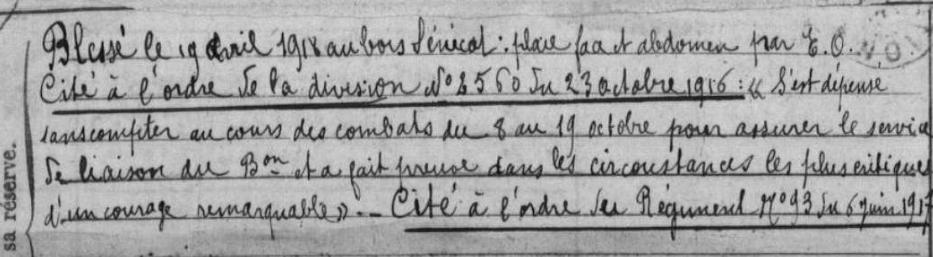 Blessé le 19 avril 1918 au bois Sénécat : plaie face et abdomen par E. O.
Cité à l'ordre de la division N° 2560 du 23 octobre 1916 : « S'est dépensé
sans compter au cours des combats du 8 au 19 octobre pour assurer le service
de liaison du Bon et a fait preuve dans les circonstances les plus critiques
d'un courage remarquable ». – Cité à l'ordre du Régiment N° 93 du 6 juin 1917
sa réserve.